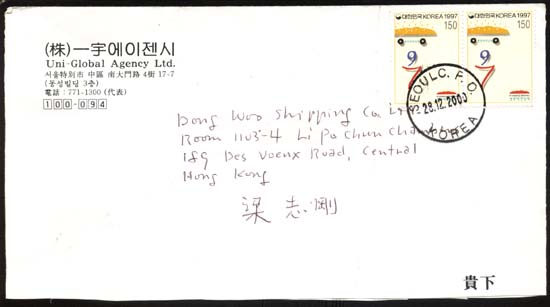 (株)一宇에이젠시
Uni-Global Agency Ltd.
서울特別市 中區 南大門路 4街 17-7
(동성빌딩 3층)
電話 : 771-1300 (代表)
100-094
대한민국 KOREA 1997
150
97
대한민국 KOREA 1997
150
97
SEOUL C. P. O.
28.12.2000
KOREA
Dong Woo Shipping Co.
Room 1103-4 Li Po Chun Chambers
189 Des Voeux Road, Central
Hong Kong
梁志剛
貴下